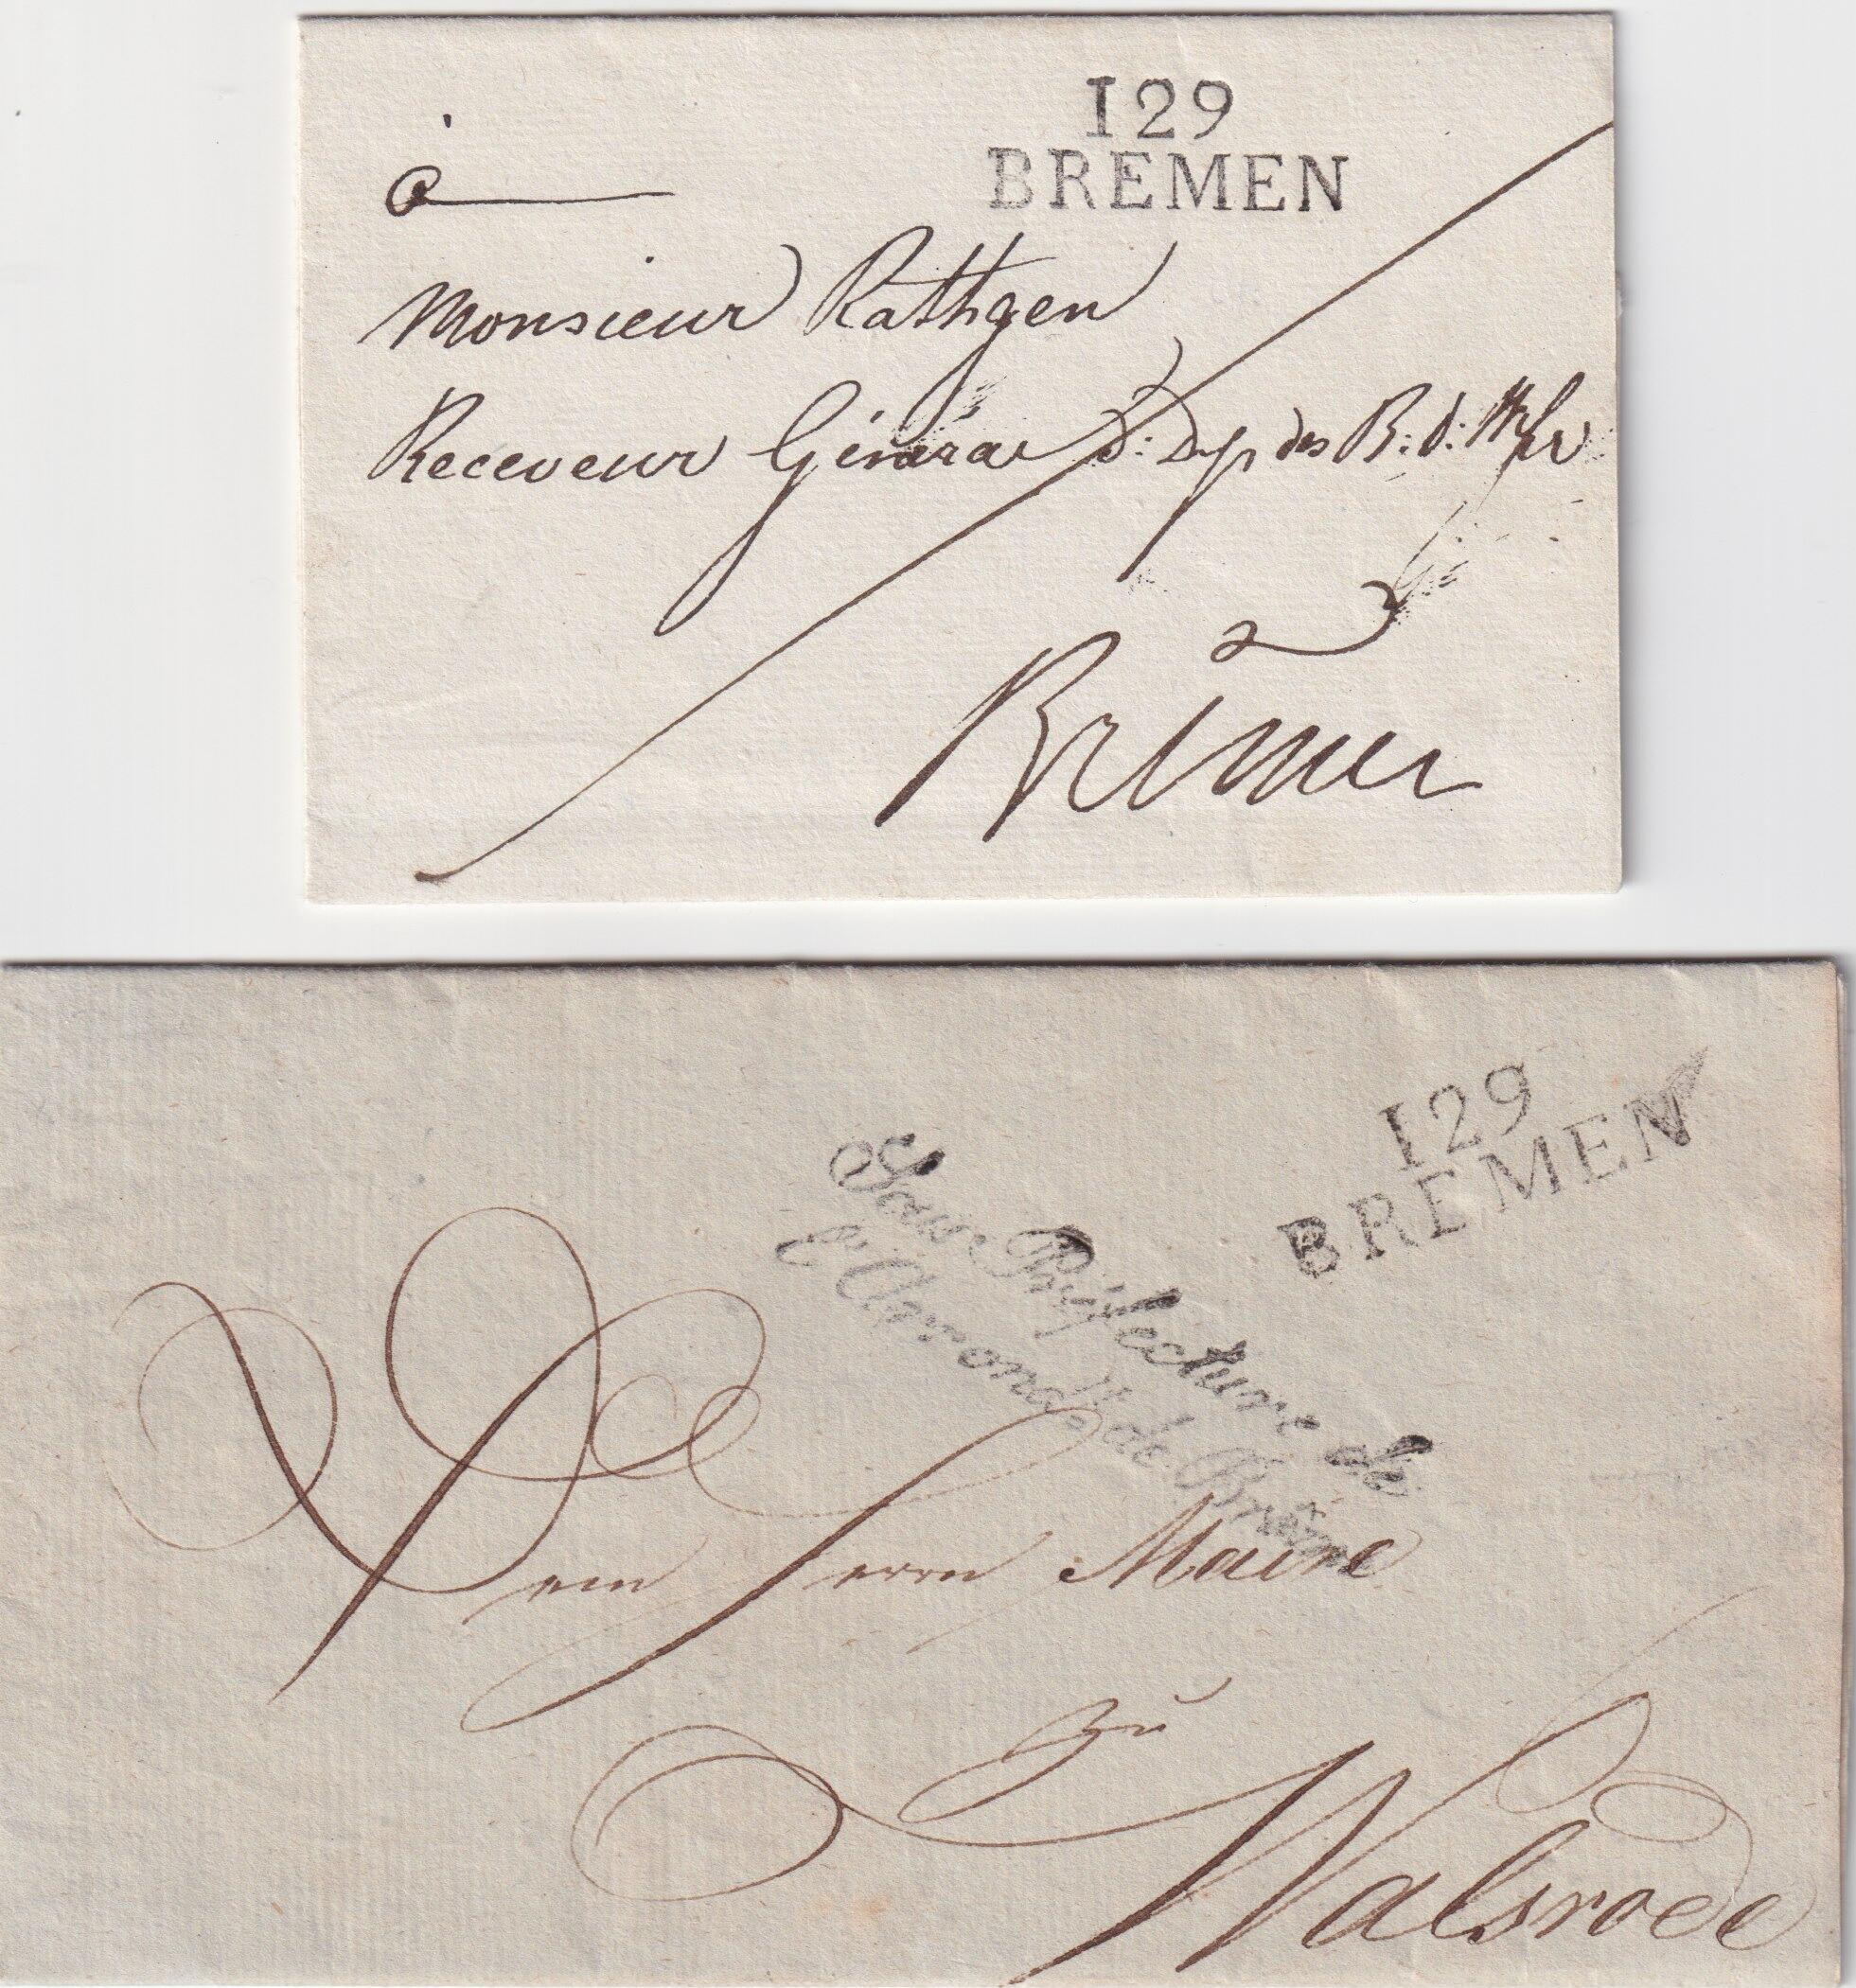 129
BREMEN
à
Monsieur Rathgen
Receveur Général d: Dep des B: d: Wesr
à
Brêmen
129
BREMEN
Sous-Préfecture de
l'Arrond.t de Brême
Dem Herrn Maire
zu
Walsrode